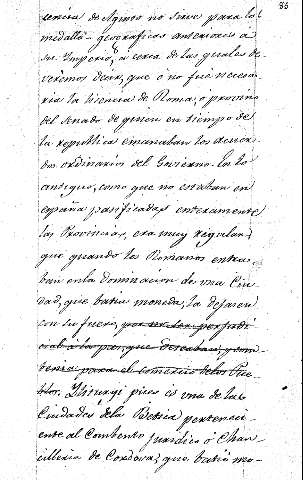 86
tencia de Agusto no sirve para las
medallas geograficas anteriores a
su Imperio, á cerca de las quales de
veremos decir, que ó no fue necesa
ria la licencia de Roma, ó provino
del Senado de quien en tiempo de
la republica emanaban los acuer
dos ordinarios del Govierno. En lo
antiguo, como que no estaban en
españa pacificadas enteramente
las Provincias, era muy regular,
que quando los Romanos entra
ban en la dominacion de una Ciu
dad, que batia moneda, la dejasen
con su fuero, por no ser perjudi
cial à la paz, que deseaban, y con
benia para el comercio de los Pue
blos. Iliturgi pues es una de las
Ciudades de la Betica perteneci
ente al Combento juridico ó Chan
cilleria de Cordova, que batió mo-